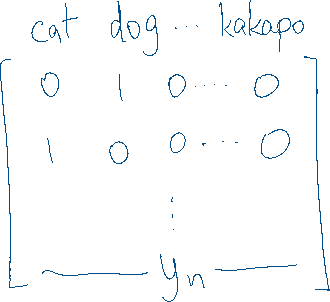 cat dog ... kakapo
0 1 0 ..... 0
1 0 0 .... 0
⋮
— yₙ —